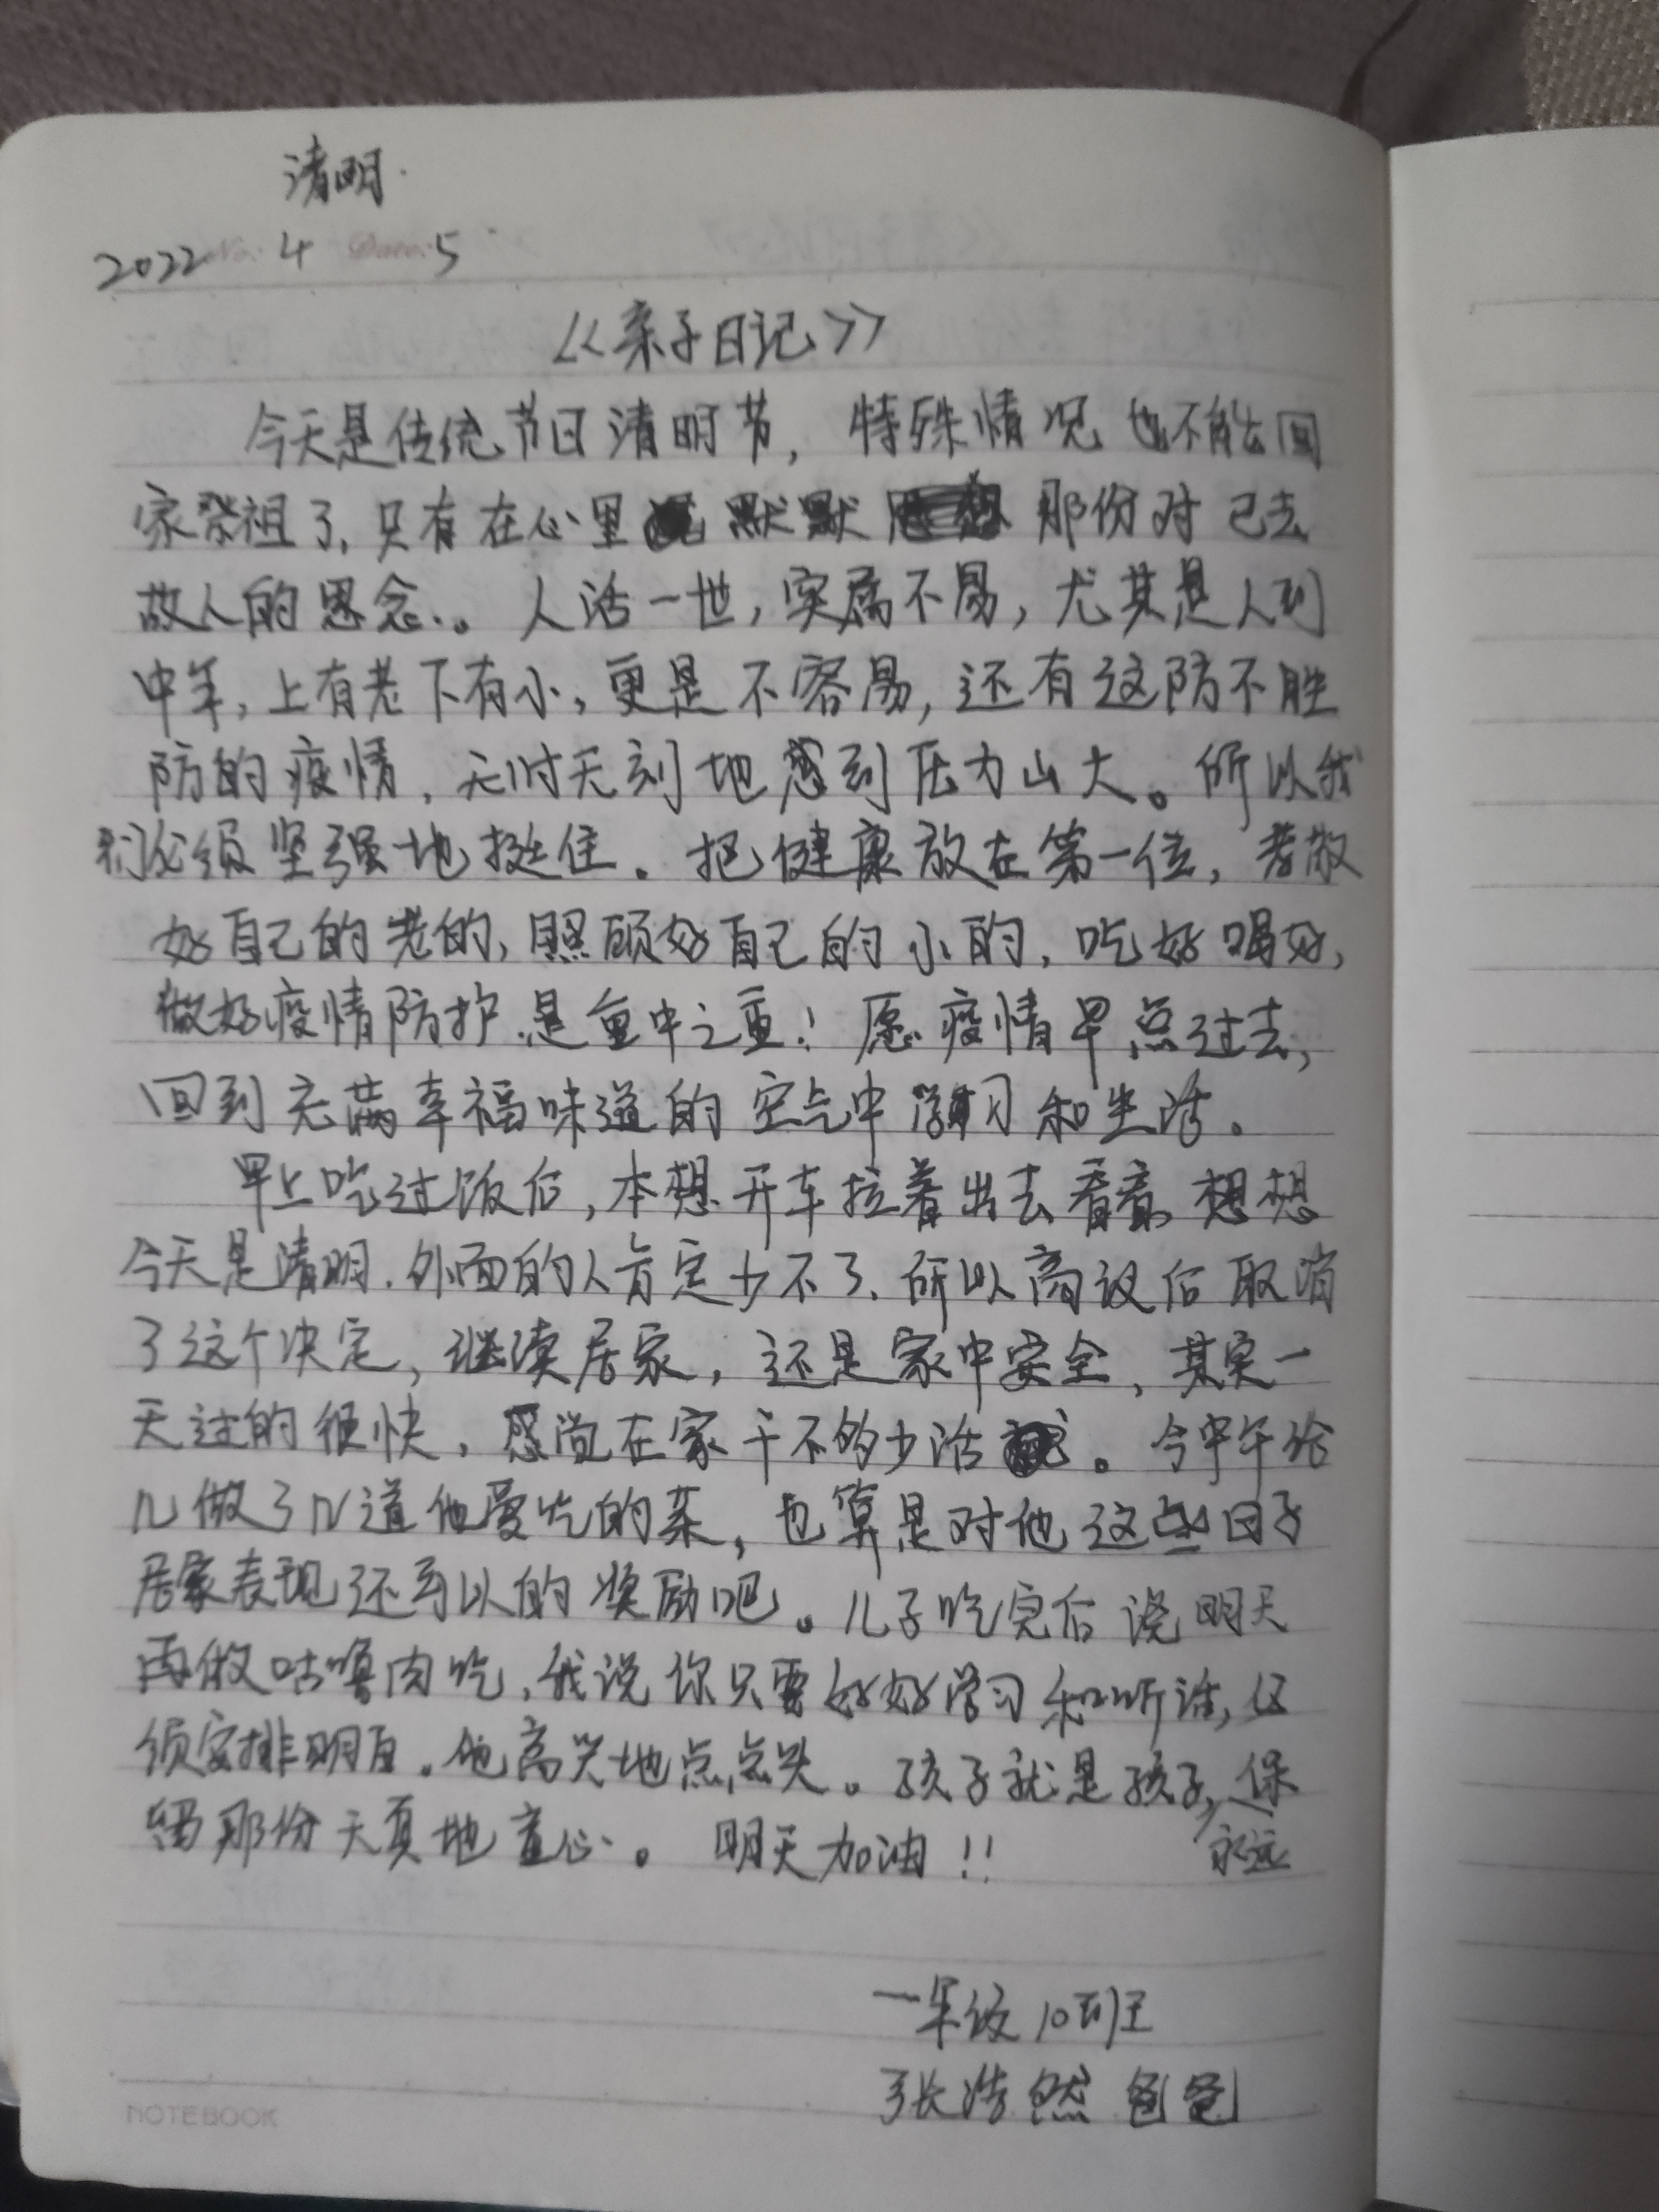 清明.
2022 4 5
<<亲子日记>>
今天是传统节日清明节,特殊情况也不能回
家祭祖了,只有在心里默默那份对已去
故人的思念.。人活一世,实属不易,尤其是人到
中年,上有老下有小,更是不容易,还有这防不胜
防的疫情,无时无刻地感到压力山大。所以我
们必须坚强地挺住。把健康放在第一位,孝敬
好自己的老的,照顾好自己的小的,吃好喝好,
做好疫情防护.是重中之重!愿疫情早点过去,
回到充满幸福味道的空气中学习和生活。
早上吃过饭后,本想开车拉着出去看看,想想
今天是清明.外面的人肯定少不了.所以商议后取消
了这个决定,继续居家,还是家中安全,其实一
天过的很快,感觉在家干不的少活。今中午给
儿做了几道他爱吃的菜,也算是对他这些日子
居家表现还可以的奖励吧。儿子吃完后说明天
再做咕噜肉吃,我说你只要好好学习和听话,必
须安排明白。他高兴地点点头。孩子就是孩子,保
留那份天真地童心。明天加油!!
永远
一年级10班
张浩然爸爸
NOTEBOOK